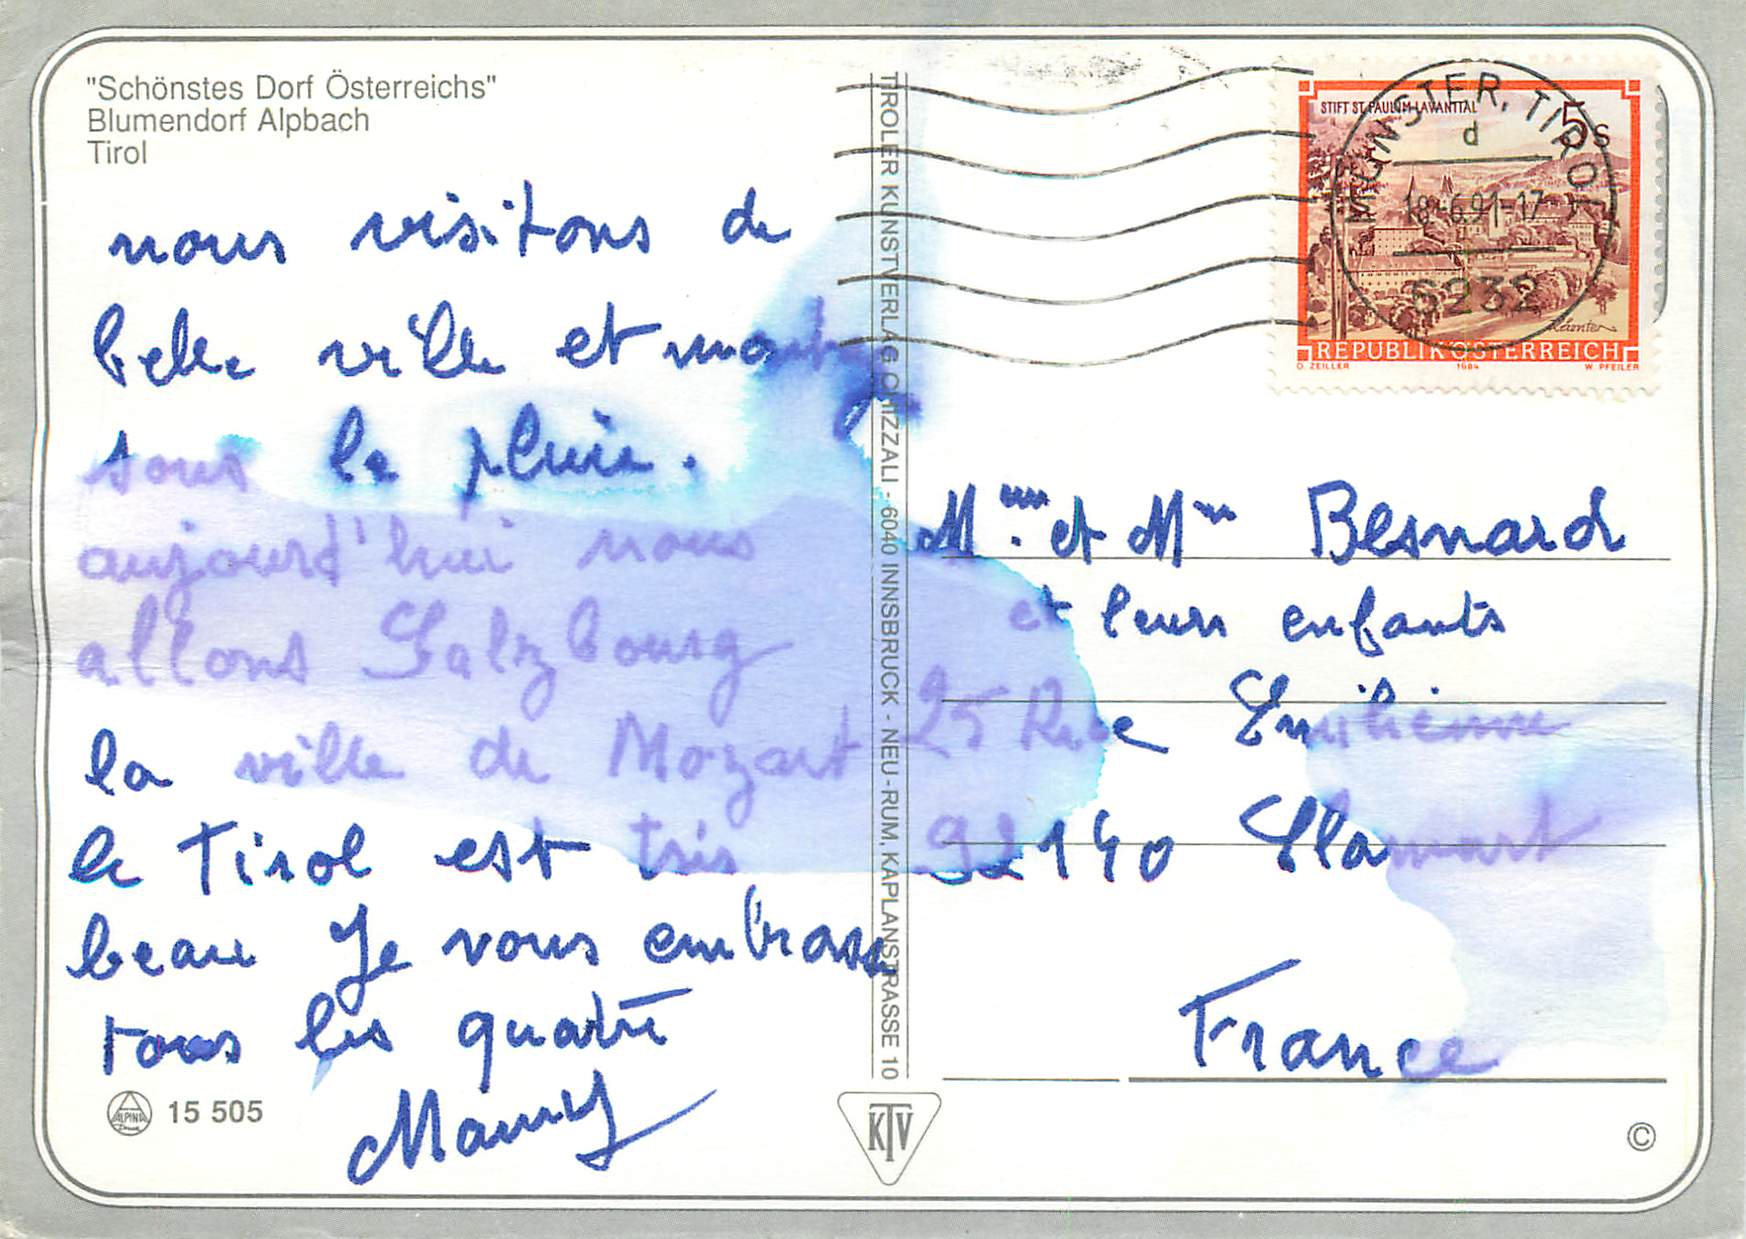 "Schönstes Dorf Österreichs"
Blumendorf Alpbach
Tirol
nous visitons de
belle ville et montag
sous la pluie.
aujourd'hui nous
allons Salzbourg
la ville de Mozart
le Tirol est tris
beau Je vous embrasse
tous les quatre
Mamy
15 505
ALPINA
TIROLER KUNSTVERLAG CHIZZALI - 6040 INNSBRUCK - NEU-RUM, KAPLANSTRASSE 10
KTV
STIFT ST. PAUL IM LAVANTTAL
5 S
Kärnten
REPUBLIK ÖSTERREICH
O. ZEILLER 1984 W. PFEILER
MÜNSTER, TIROL
d
18.-6.91-17
6232
Mme et Mr Besnard
et leurs enfants
25 Rue Emilienne
92140 Clamart
France
©